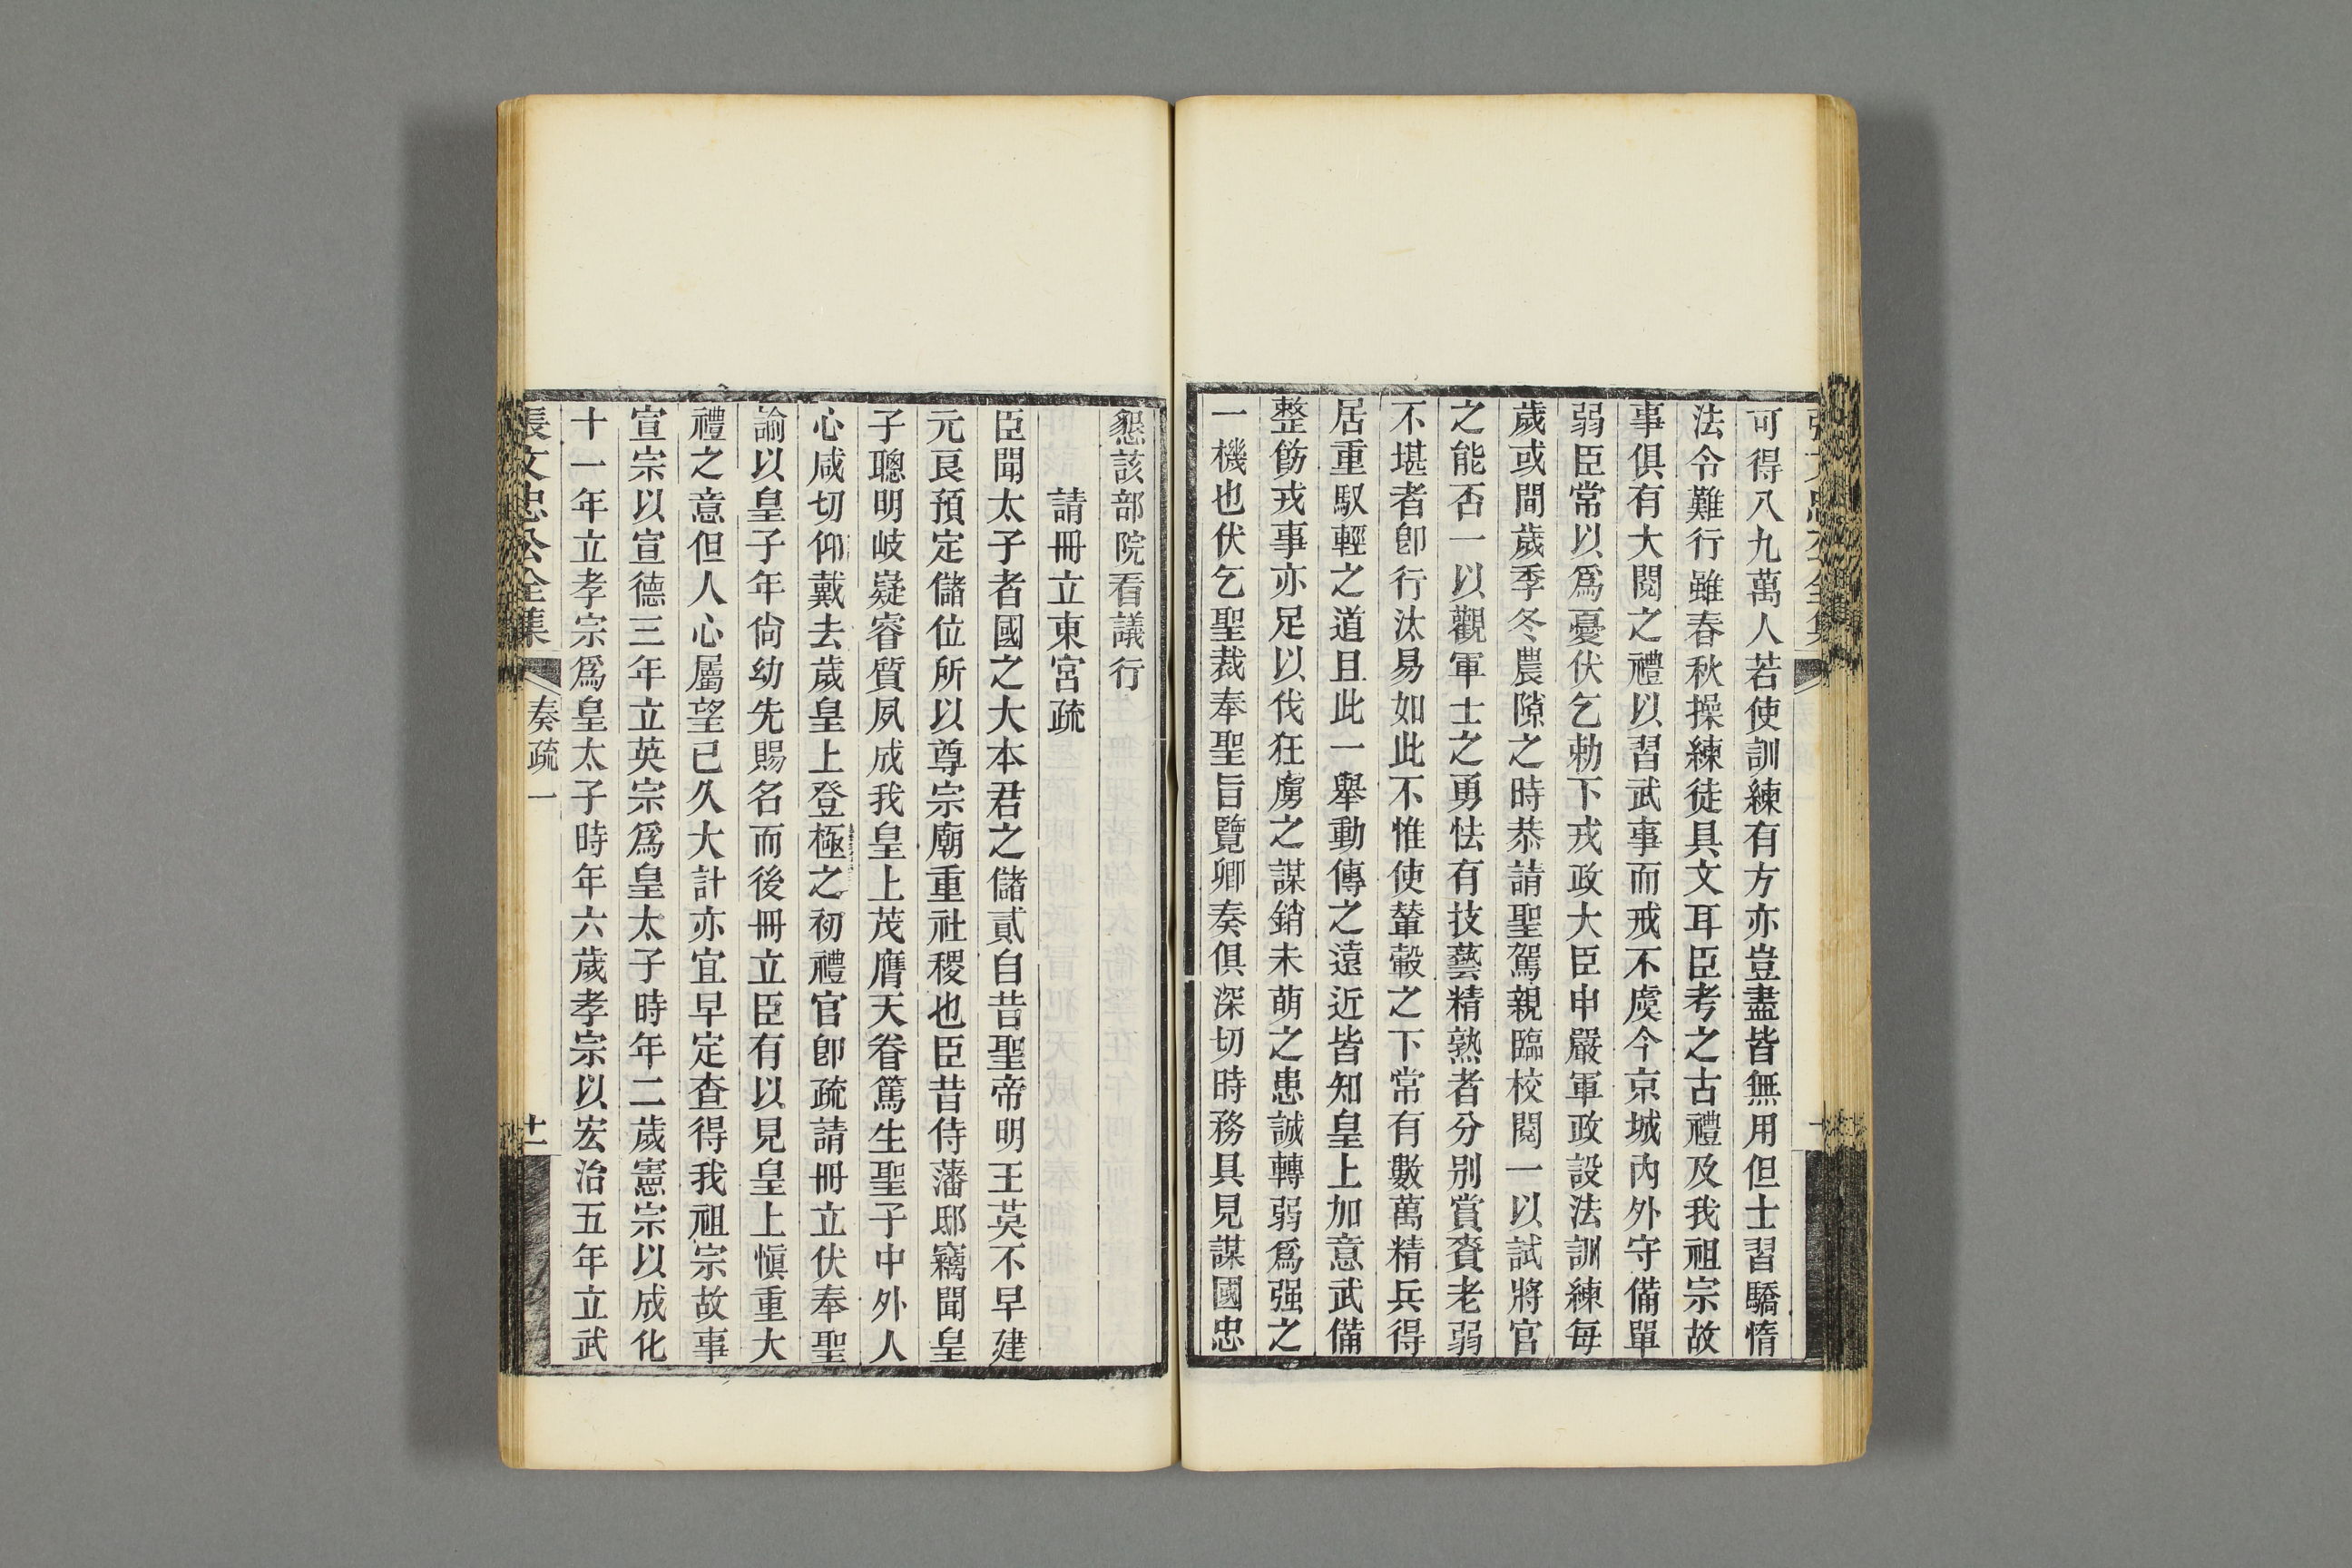 可得八九萬人若使訓練有方亦豈盡皆無用但士習驕惰
法令難行雖春秋操練徒具文耳臣考之古禮及我祖宗故
事俱有大閱之禮以習武事而戒不虞今京城內外守備單
弱臣常以爲憂伏乞勅下戎政大臣申嚴軍政設法訓練每
歲或間歲季冬農隙之時恭請聖駕親臨校閱一以試將官
之能否一以觀軍士之勇怯有技藝精熟者分別賞賚老弱
不堪者卽行汰易如此不惟使輦轂之下常有數萬精兵得
居重馭輕之道且此一舉動傳之遠近皆知皇上加意武備
整飭戎事亦足以伐狂虜之謀銷未萌之患誠轉弱爲强之
一機也伏乞聖裁奉聖旨覽卿奏俱深切時務具見謀國忠
懇該部院看議行
請冊立東宮疏
臣聞太子者國之大本君之儲貳自昔聖帝明王莫不早建
元良預定儲位所以尊宗廟重社稷也臣昔侍藩邸竊聞皇
子聰明岐嶷睿質夙成我皇上茂膺天眷篤生聖子中外人
心咸切仰戴去歲皇上登極之初禮官卽疏請冊立伏奉聖
諭以皇子年尙幼先賜名而後冊立臣有以見皇上愼重大
禮之意但人心屬望已久大計亦宜早定查得我祖宗故事
宣宗以宣德三年立英宗爲皇太子時年二歲憲宗以成化
十一年立孝宗爲皇太子時年六歲孝宗以宏治五年立武
張文忠公全集 奏疏一 十一